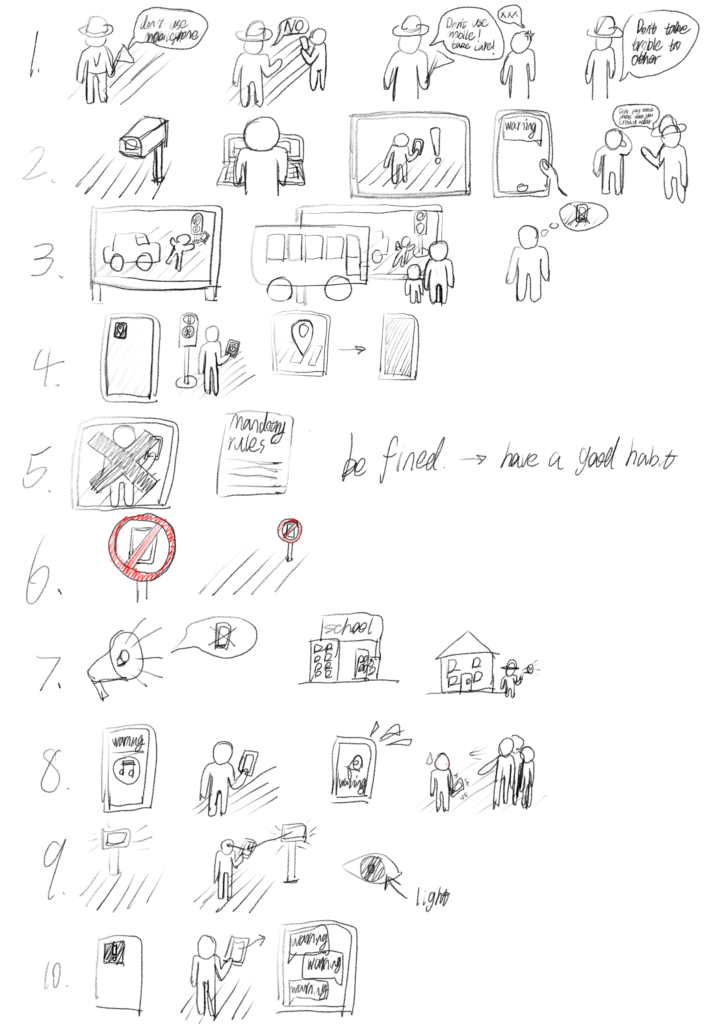 1.
don't use
mobilephone
NO
Don't use
mobile!
take care!
XXX
Don't take
trouble to
other
2.
!
warning
3.
4.
5.
mandatory
rules
be fined. → have a good habit
6.
7.
school
8.
warning
warning
9.
light
10.
!
warning
warning
warning